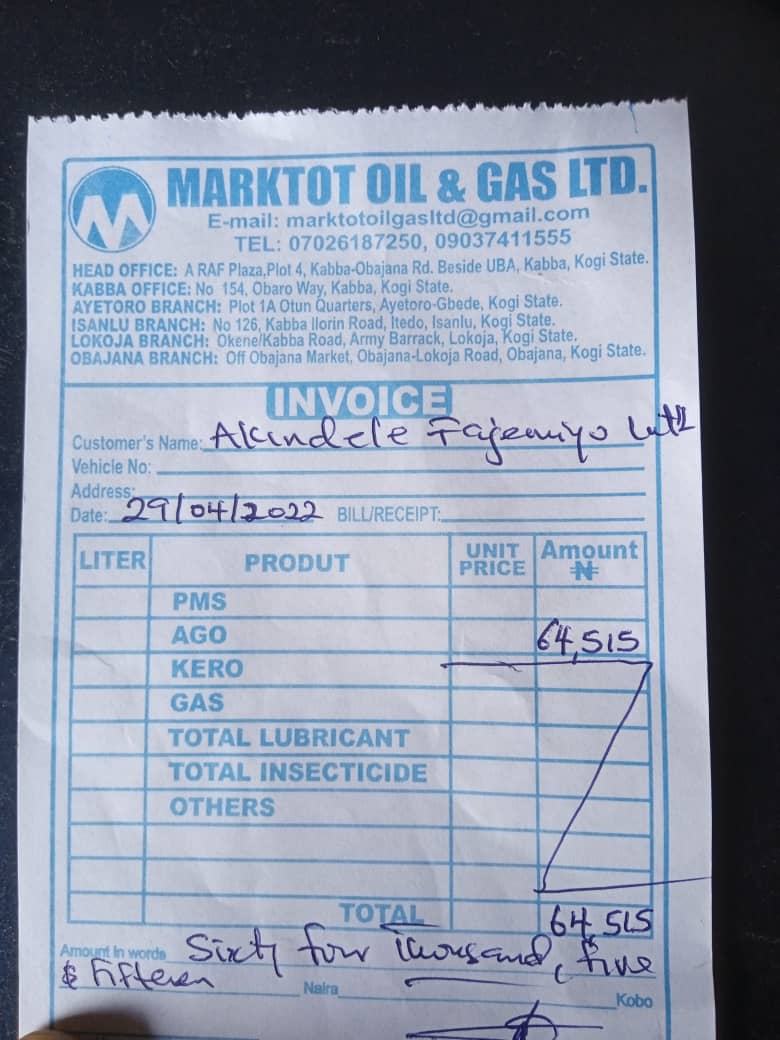 MARKTOT OIL & GAS LTD.
E-mail: marktotoilgasltd@gmail.com
TEL: 07026187250, 09037411555
HEAD OFFICE: A RAF Plaza,Plot 4, Kabba-Obajana Rd. Beside UBA, Kabba, Kogi State.
KABBA OFFICE: No 154, Obaro Way, Kabba, Kogi State.
AYETORO BRANCH: Plot 1A Otun Quarters, Ayetoro-Gbede, Kogi State.
ISANLU BRANCH: No 126, Kabba Ilorin Road, Itedo, Isanlu, Kogi State.
LOKOJA BRANCH: Okene/Kabba Road, Army Barrack, Lokoja, Kogi State.
OBAJANA BRANCH: Off Obajana Market, Obajana-Lokoja Road, Obajana, Kogi State.
INVOICE
Customer's Name: Akindele Fajemiyo
Vehicle No:
Address:
Date: 29/04/2022 BILL/RECEIPT:
LITER PRODUT UNIT PRICE Amount ₦
PMS
AGO 64,515
KERO
GAS
TOTAL LUBRICANT
TOTAL INSECTICIDE
OTHERS
TOTAL 64,515
Amount in words Sixty four Thousand, five
& Fifteen Naira Kobo